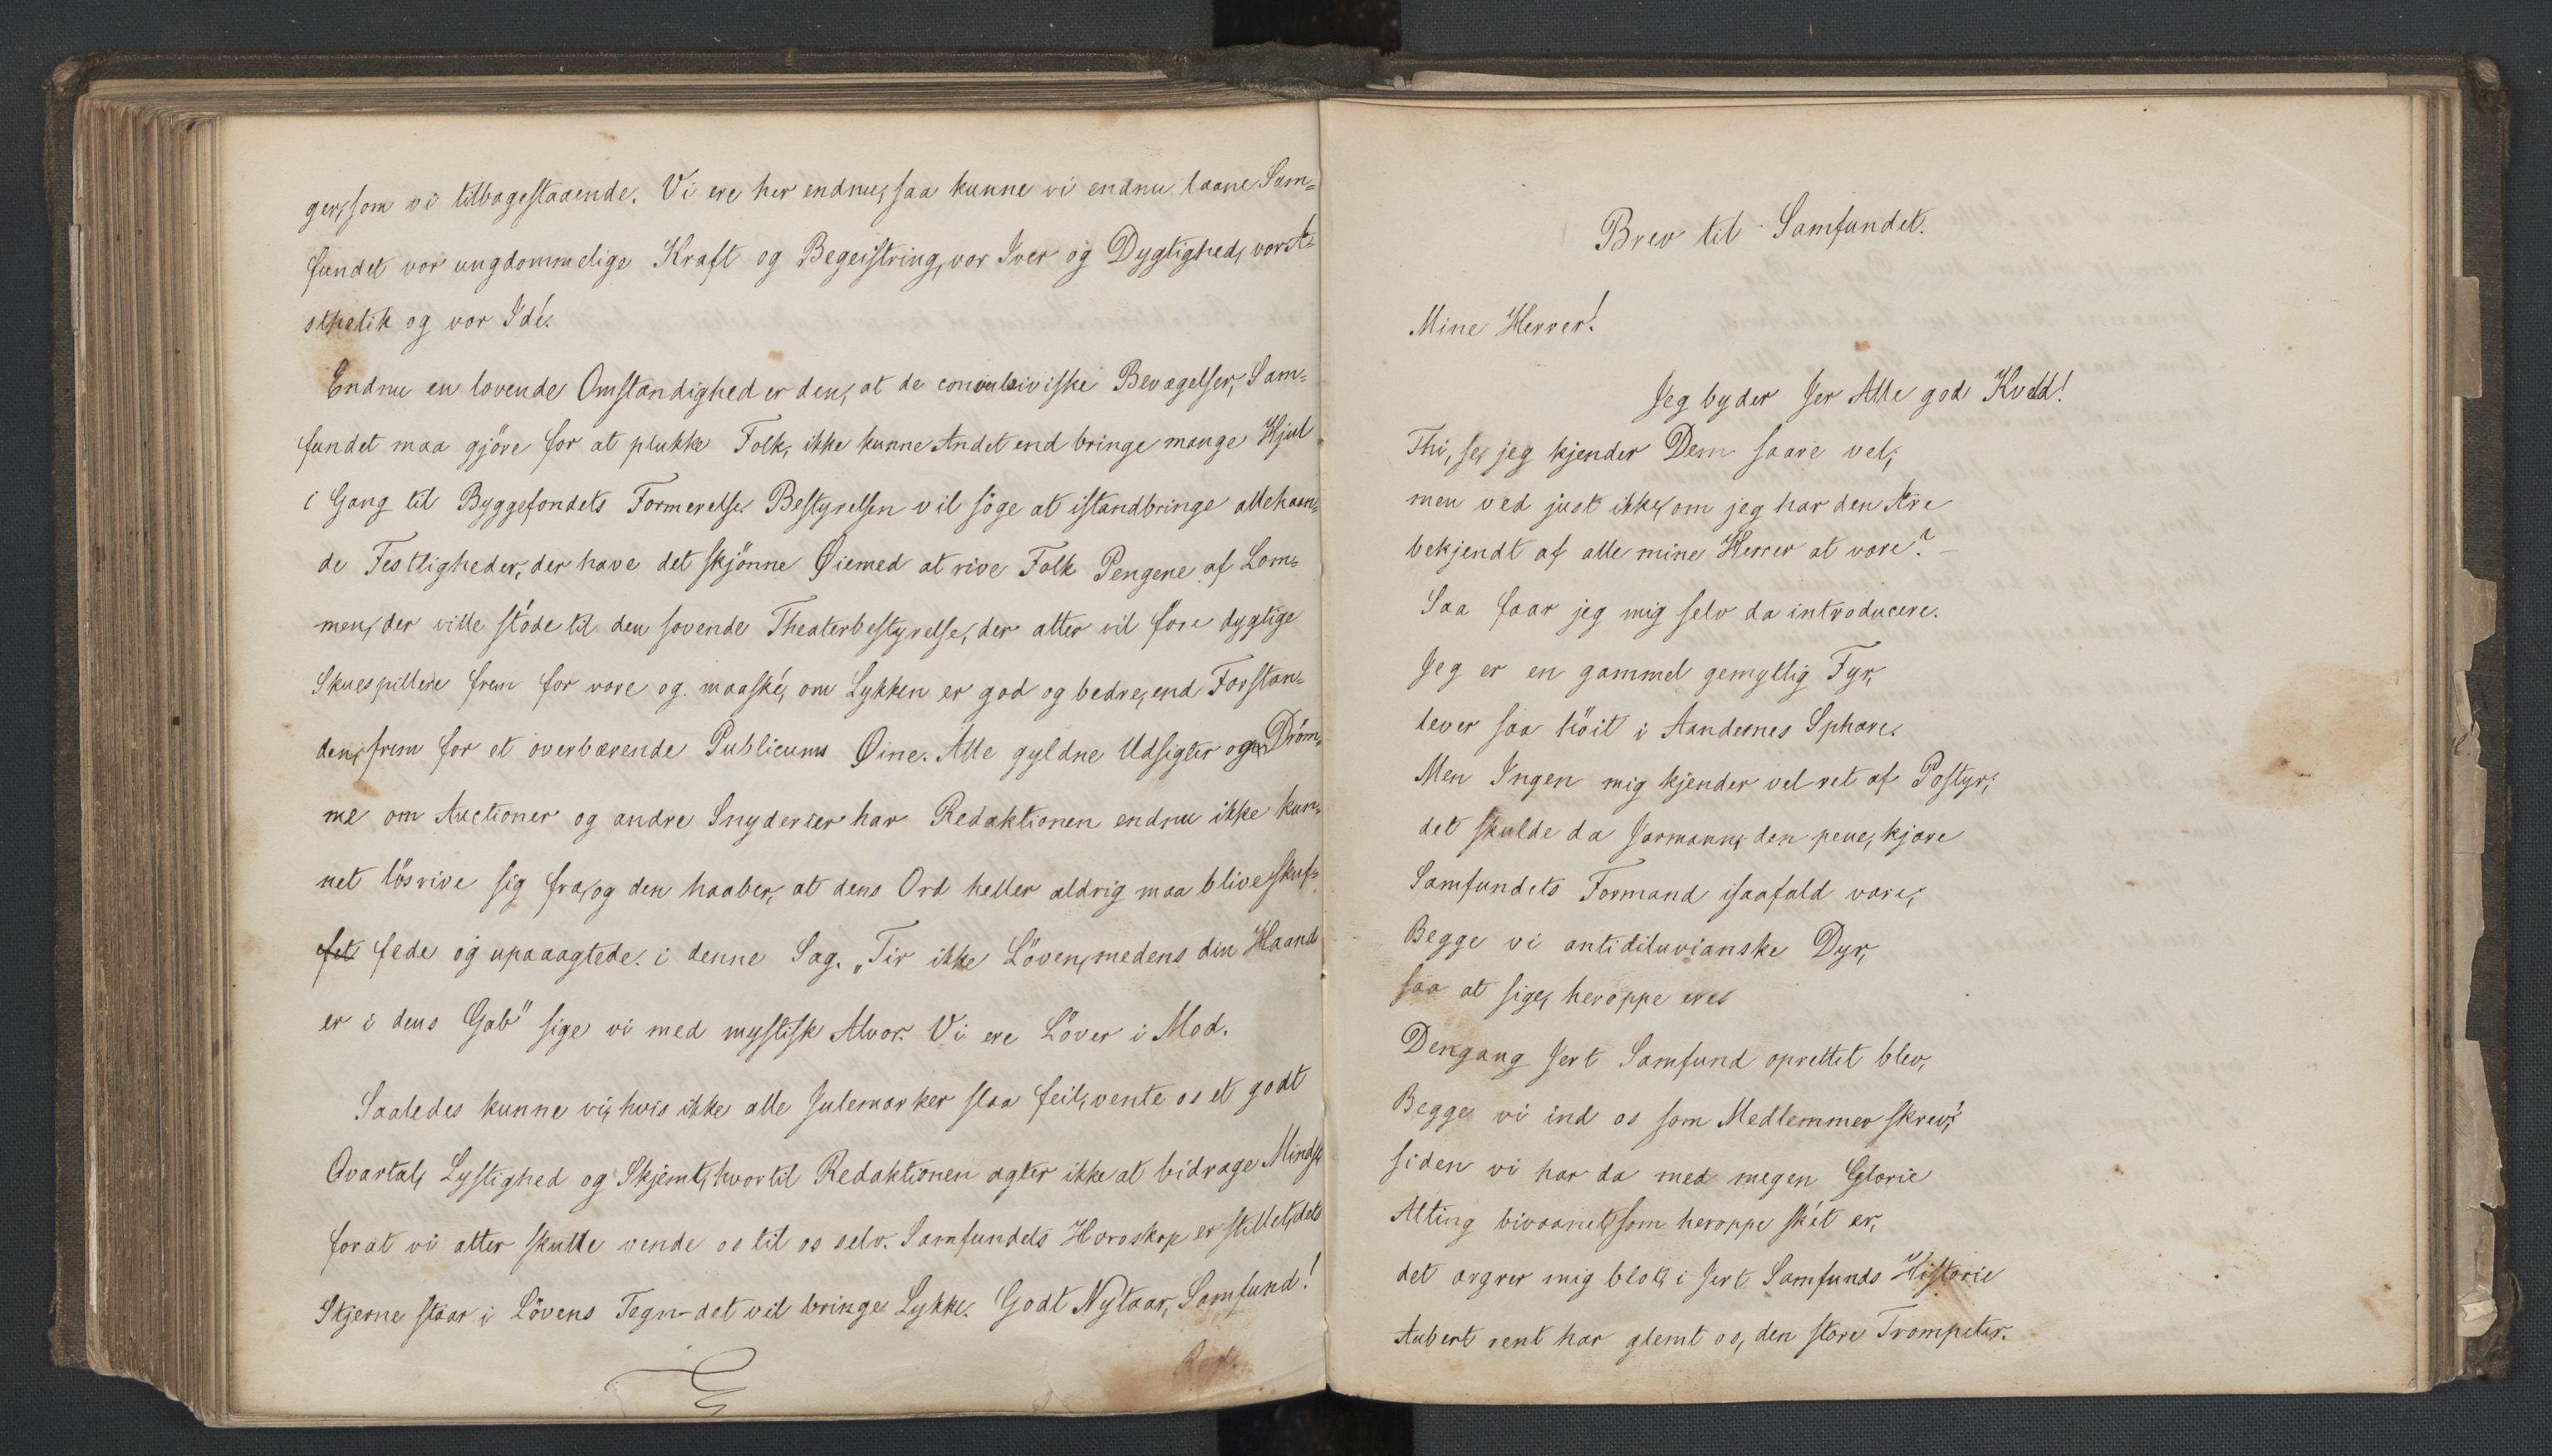 ger, som vi tilbagestaaende. Vi ere her endnu, saa kunne vi endnu laane Sam-
fundet vor ungdommelige Kraft og Begeistring, vor Iver og Dygtighed, vor Æ-
sthetik og vor Idé.
Endnu en lovende Omstændighed er den, at de convulsiviske Bevægelser, Sam-
fundet maa gjöre for at plukke Folk, ikke kunne Andet end bringe mange Hjul
i Gang til Byggefondets Formerelse. Bestyrelsen vil söge at istandbringe allehaan-
de Festligheder, der have det skjönne Øiemed at rive Folk Pengene af Lom-
men, der ville stöde til den sovende Theaterbestyrelse, der atter vil före dygtige
Skuespillere frem for vore og maaské, om Lykken er god og bedre, end Forstan-
den, frem for et overbærende Publicums Øine. Alle gyldne Udsigter og Dröm-
me om Auctioner og andre Snyderier har Redaktionen endnu ikke kun-
net lösrive sig fra, og den haaber, at dens Ord heller aldrig maa blive skuf-
fet fede og upaaagtede i denne Sag. „Tir ikke Löven, medens din Haand
er i dens Gab" sige vi med mystisk Alvor. Vi ere Löver i Mod.
Saaledes kunne vi, hvis ikke alle Julemærker slaa feil, vente os et godt
Qvartal, Lystighed og Skjemt, hvortil Redaktionen agter ikke at bidrage Mindst
forat vi atter skulle vende os til os selv. Samfundets Horoskop er stillet, dets
Stjerne staar i Lövens Tegn - det vil bringe Lykke. Godt Nytaar, Samfund!
Red.
Brev til Samfundet.
Mine Herrer!
Jeg byder Jer Alle god Kveld!
Thi, se, jeg kjender Dem saare vel;
men ved just ikke, om jeg har den Ære
bekjendt af alle mine Herrer at være? -
Saa faar jeg mig selv da introducere.
Jeg er en gammel gemytlig Fyr,
lever saa höit i Aandernes Sphære.
Men Ingen mig kjender vel ret af Postyr;
det skulde da Jarmann, den pene, kjære
Samfundets Formand isaafald være;
Begge vi antidiluvianske Dyr,
saa at sige, heroppe ere
Dengang Jert Samfund oprettet blev,
Begge vi ind os som Medlemmer skrev;
siden vi har da med megen Glorie
Alting bivaanet, som heroppe skét er,
det ærgrer mig blot, i Jert Samfunds Historie
Aubert rent har glemt os, den store Trompeter.